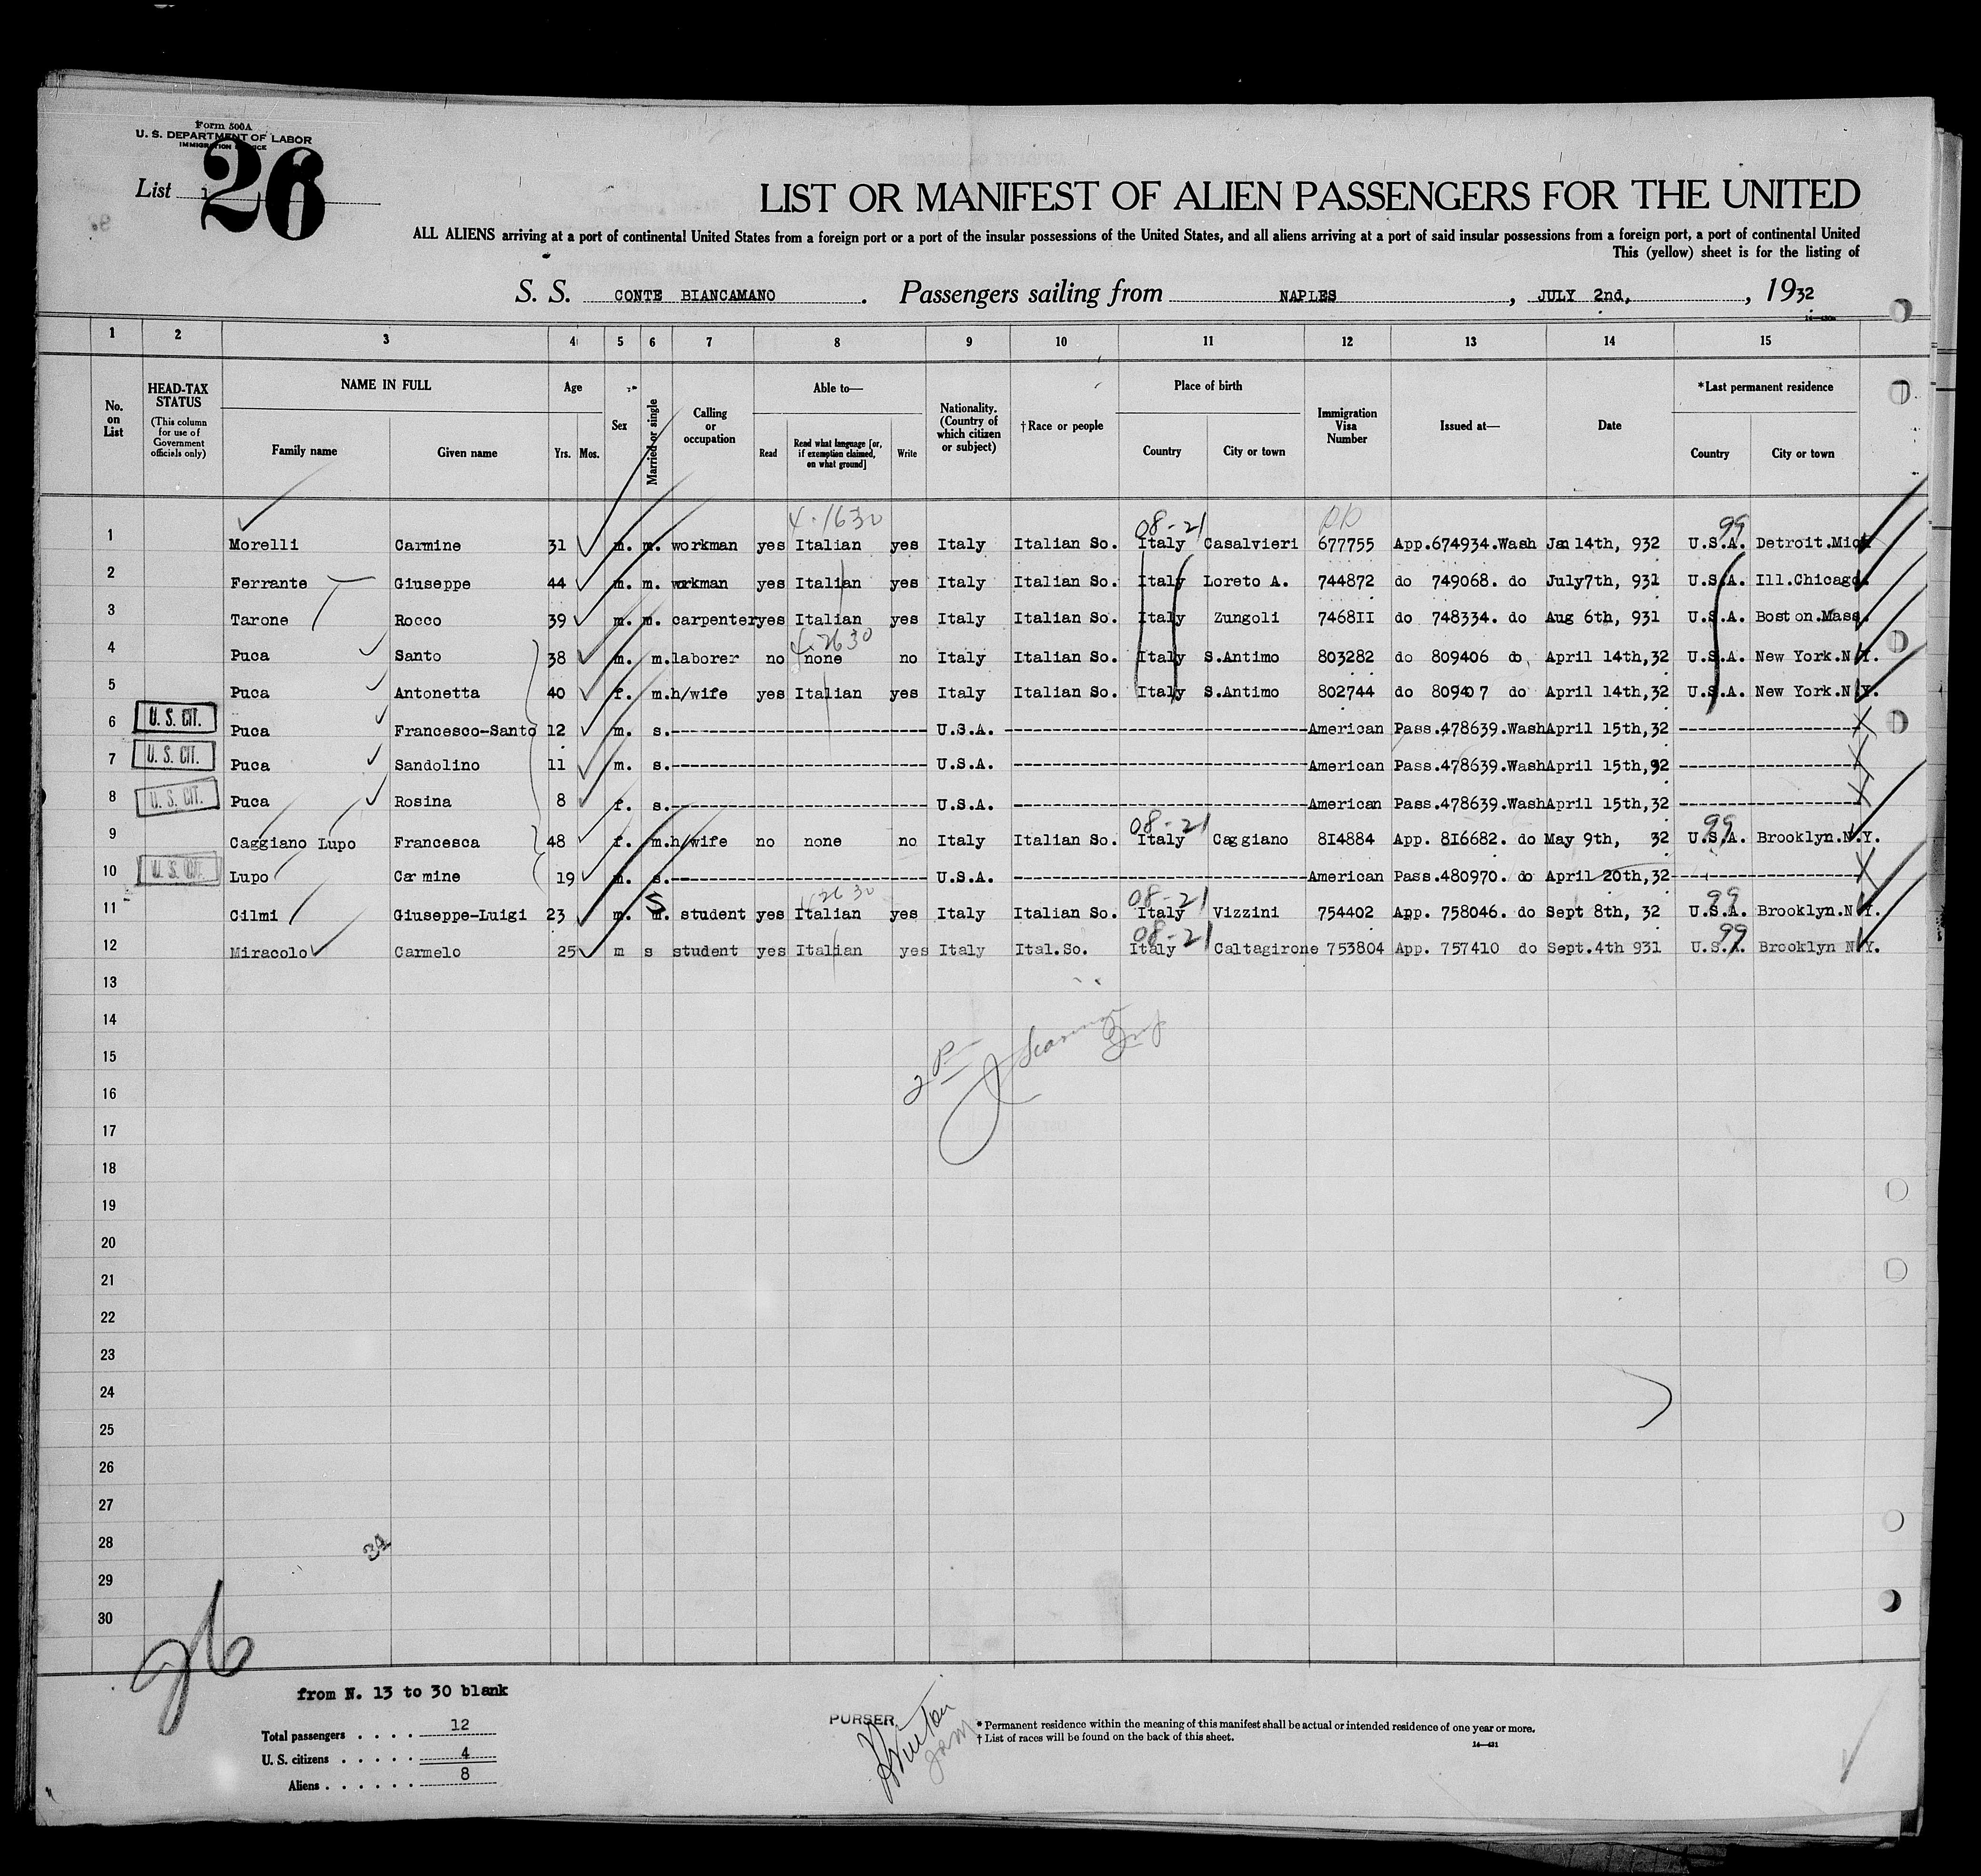 Form 500A
U. S. DEPARTMENT OF LABOR
IMMIGRATION SERVICE
List 1
26
LIST OR MANIFEST OF ALIEN PASSENGERS FOR THE UNITED
ALL ALIENS arriving at a port of continental United States from a foreign port or a port of the insular possessions of the United States, and all aliens arriving at a port of said insular possessions from a foreign port, a port of continental United
This (yellow) sheet is for the listing of
S. S. CONTE BIANCAMANO. Passengers sailing from NAPLES, JULY 2nd, , 1932
1 2 3 4 5 6 7 8 9 10 11 12 13 14 15
No. on List
HEAD-TAX STATUS
(This column for use of Government officials only)
NAME IN FULL
Family name Given name
Age
Yrs. Mos.
Sex
Married or single
Calling or occupation
Able to—
Read Read what language [or, if exemption claimed, on what ground] Write
Nationality. (Country of which citizen or subject)
†Race or people
Place of birth
Country City or town
Immigration Visa Number
Issued at—
Date
*Last permanent residence
Country City or town
4-1630 08-21 99
1 Morelli Carmine 31 m. m. workman yes Italian yes Italy Italian So. Italy Casalvieri 677755 App.674934.Wash Jan 14th, 932 U.S.A. Detroit.Mich
2 Ferrante Giuseppe 44 m. m. workman yes Italian yes Italy Italian So. Italy Loreto A. 744872 do 749068. do July7th, 931 U.S.A. Ill.Chicago.
3 Tarone Rocco 39 m. m. carpenter yes Italian yes Italy Italian So. Italy Zungoli 7468II do 748334. do Aug 6th, 931 U.S.A. Boston.Mass.
4-2630
4 Puca Santo 38 m. m. laborer no none no Italy Italian So. Italy S.Antimo 803282 do 809406 do, April 14th,32 U.S.A. New York.N.Y.
5 Puca Antonetta 40 f. m. h/wife yes Italian yes Italy Italian So. Italy S.Antimo 802744 do 809407 do April 14th,32 U.S.A. New York.N.Y.
6 U. S. CIT. Puca Francesco-Santo 12 m. s. U.S.A. American Pass.478639.Wash April 15th,32
7 U. S. CIT. Puca Sandolino 11 m. s. U.S.A. American Pass.478639.Wash April 15th,32
8 U. S. CIT. Puca Rosina 8 f. s. U.S.A. American Pass.478639.Wash April 15th,32
08-21 99
9 Caggiano Lupo Francesca 48 f. m. h/wife no none no Italy Italian So. Italy Caggiano 814884 App. 816682. do May 9th, 32 U.S.A. Brooklyn.N.Y.
10 U. S. CIT. Lupo Carmine 19 m. s. U.S.A. American Pass.480970. do April 20th,32
2630 08-21 99
11 Cilmi Giuseppe-Luigi 23 m. m. S student yes Italian yes Italy Italian So. Italy Vizzini 754402 App. 758046. do Sept 8th, 32 U.S.A. Brooklyn.N.Y.
08-21 99
12 Miracolo Carmelo 25 m s student yes Italian yes Italy Ital.So. Italy Caltagirone 753804 App. 757410 do Sept.4th 931 U.S.A. Brooklyn N.Y.
13
14
15
16
17
18
19
20
21
22
23
24
25
26
27
28
29
30
26
from N. 13 to 30 blank
Total passengers . . . . 12
U. S. citizens . . . . . 4
Aliens . . . . . . 8
PURSER
* Permanent residence within the meaning of this manifest shall be actual or intended residence of one year or more.
† List of races will be found on the back of this sheet.